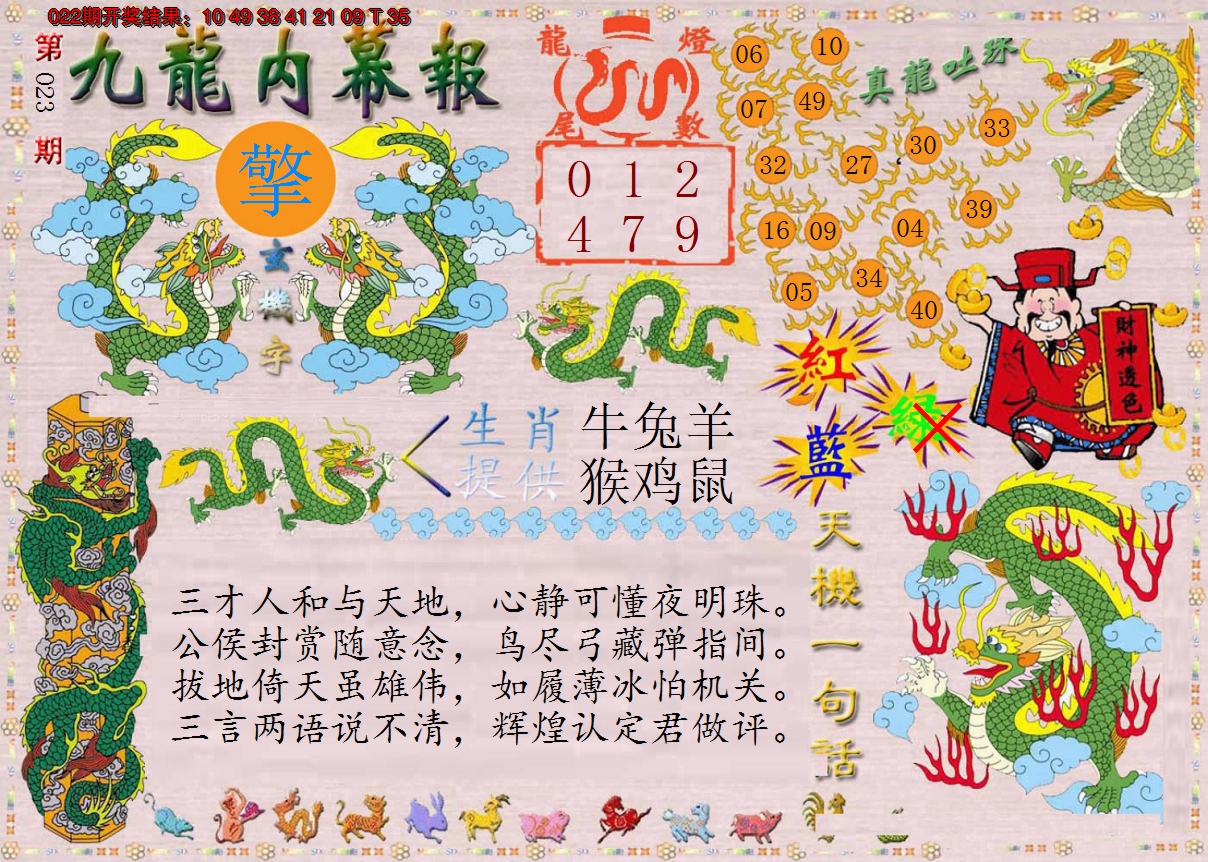 022期开奖结果：10 49 38 41 21 09 T 35
第023期
九龍内幕報
擎
玄機字
龍燈
尾數
0 1 2
4 7 9
真龍吐珠
06 10
07 49
32 27 30 33
16 09 04 39
05 34 40
財神透色
紅
綠
藍
生肖
提供
牛兔羊
猴鸡鼠
天機一句话
三才人和与天地，心静可懂夜明珠。
公侯封赏随意念，鸟尽弓藏弹指间。
拔地倚天虽雄伟，如履薄冰怕机关。
三言两语说不清，辉煌认定君做评。